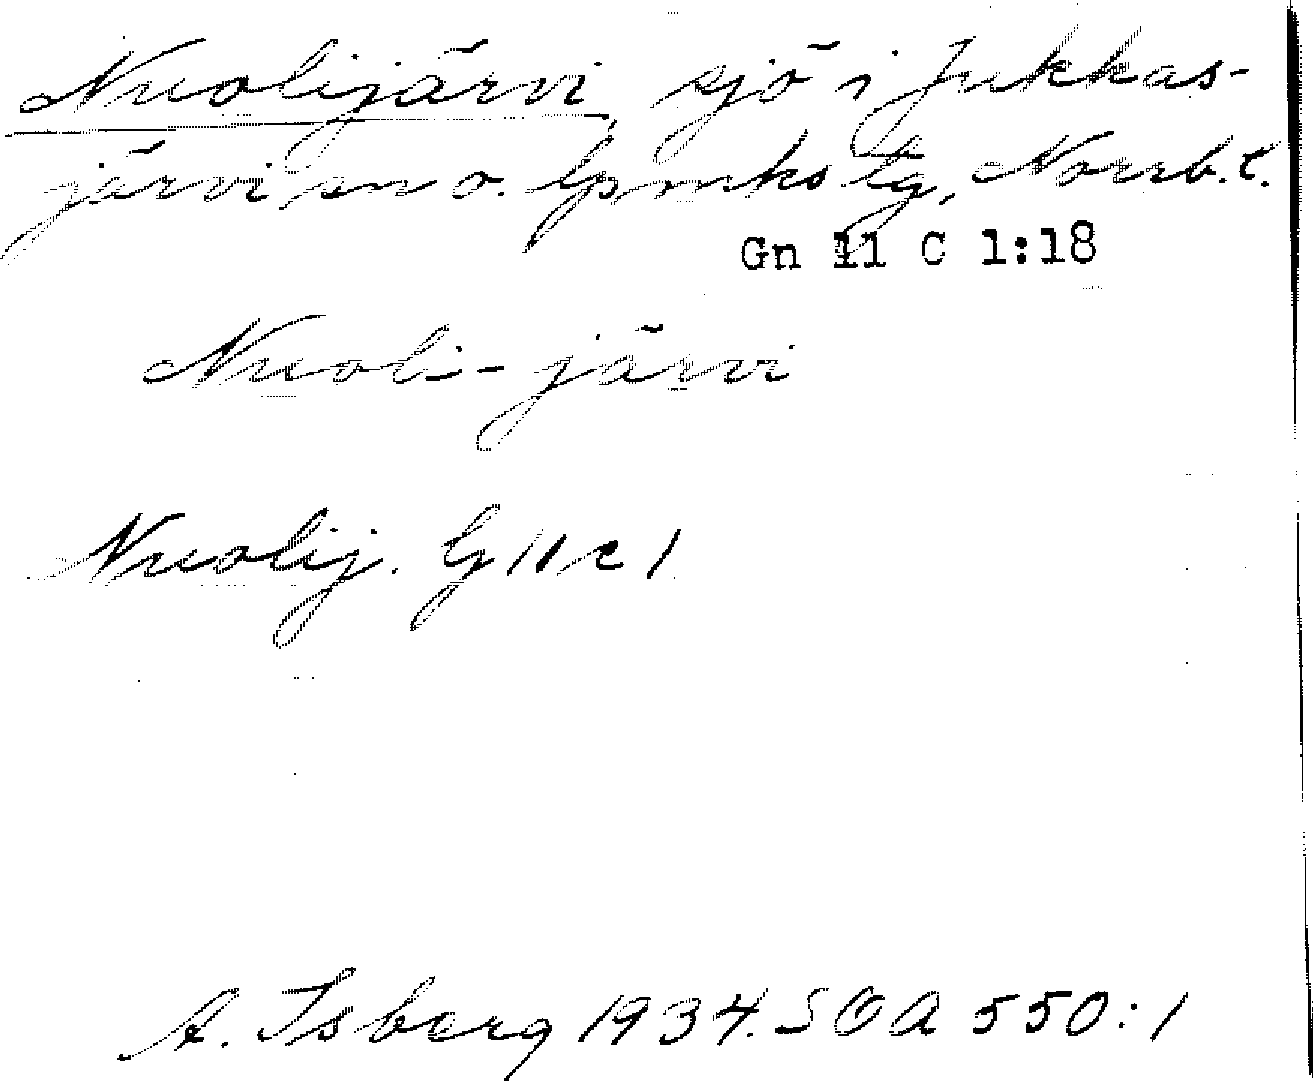 Nuolijärvi, sjö i Jukkas-
järvi sn o. lpmks tg, Norrb. l.
Gn 11 C 1:18
Nuoli-järvi
Nuolij. G 11 c 1
A. Isberg 1934. SOA 550:1